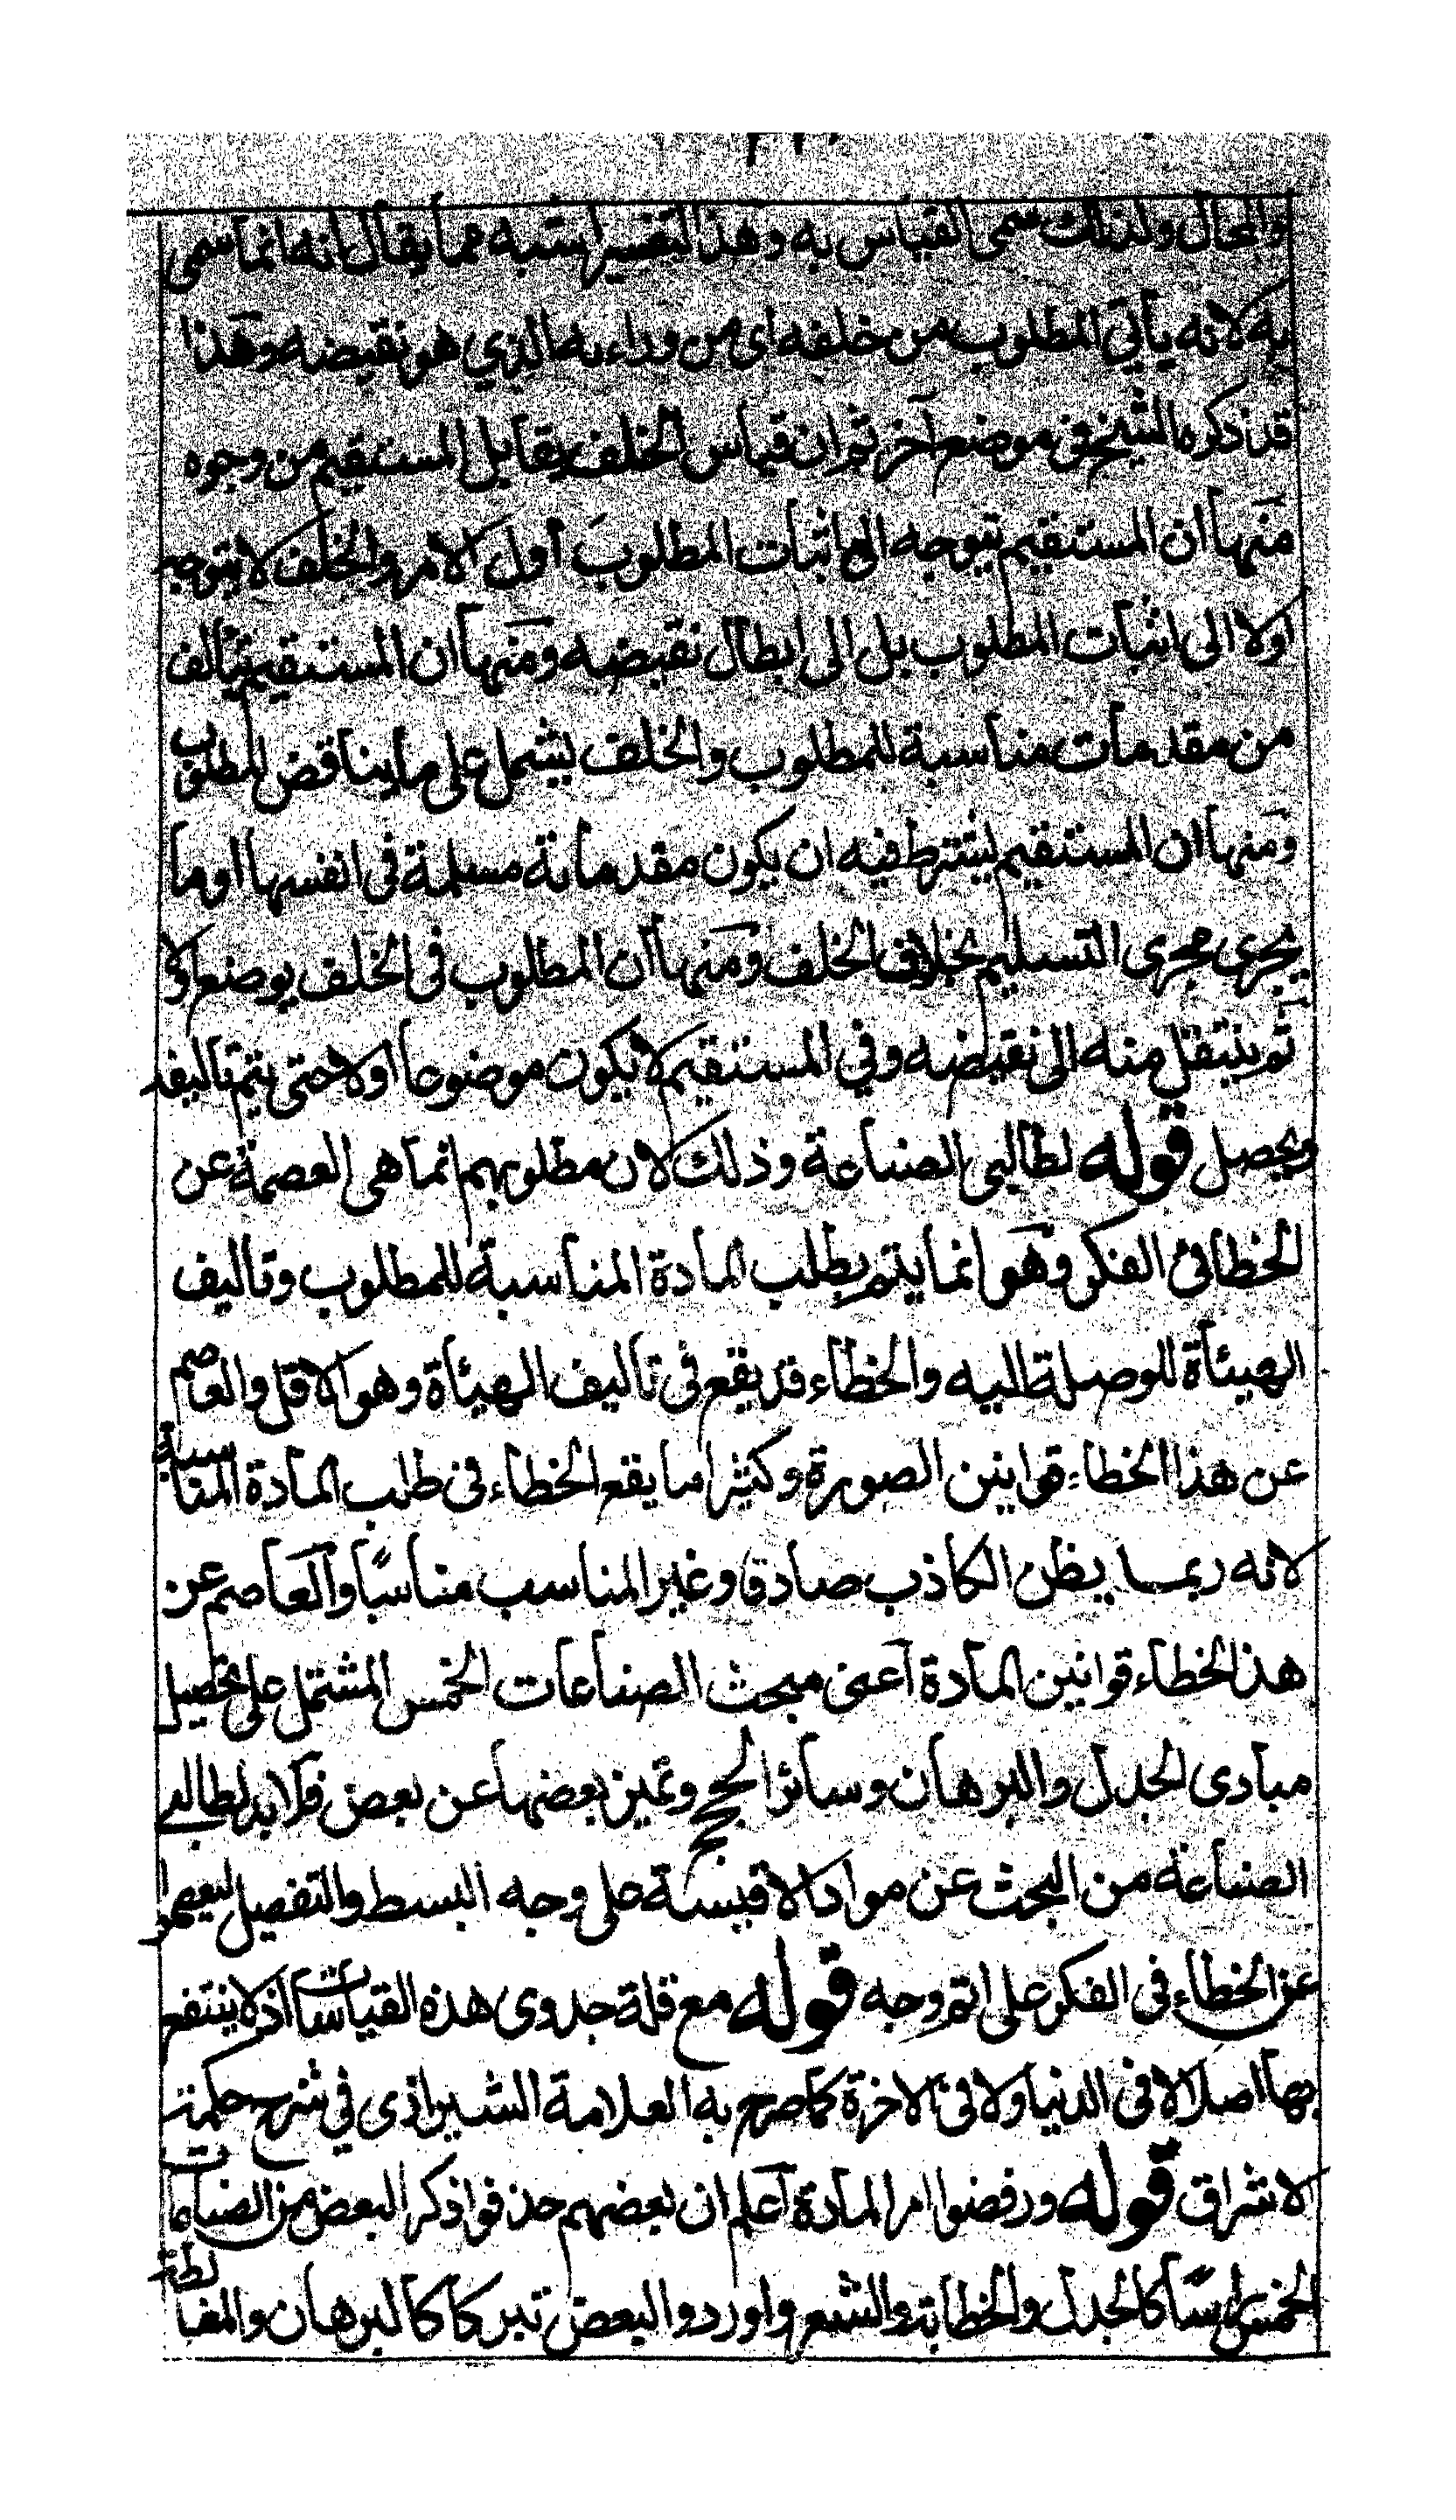 والمحال ولذلك سمى القياس به وهذا التفسير اشبه مما يقال انه انما سمى
به لانه يأتي المطلوب من خلفه اى من وراءه الذي هو نقيضه وهذا
قد ذكره الشيخ في موضع آخر ثم ان قياس الخلف يقابل المستقيم من وجوه
منها ان المستقيم يتوجه الى اثبات المطلوب أول الامر والخلف لا يتوجه
اولا الى اثبات المطلوب بل الى ابطال نقيضه ومنها ان المستقيم يتالف
من مقدمات مناسبة للمطلوب والخلف يشمل على ما يناقض المطلوب
ومنها ان المستقيم يشترط فيه ان يكون مقدماته مسلمة في انفسها او ما
يجرى مجرى التسليم بخلاف الخلف ومنها ان المطلوب في الخلف يوضع اولا
ثم ينتقل منه الى نقيضه وفي المستقيم لا يكون موضوعا اولا حتى يتم تاليفه
ويحصل قوله لطالبى الصناعة وذلك لان مطلوبهم انما هى العصمة عن
الخطا في الفكر وهو انما يتم بطلب المادة المناسبة للمطلوب وتاليف
الهيئأة للوصلة اليه والخطاء قد يقع في تاليف الهيئأة وهو الاقل والعاصم
عن هذا الخطاء قوانين الصورة وكثيرا ما يقع الخطاء في طلب المادة المناسبة
لانه ربما يظن الكاذب صادقا وغير المناسب مناسبًا والعاصم عن
هذا الخطاء قوانين المادة اعنى مبحث الصناعات الخمس المشتمل على تحصيل
مبادى الجدل والبرهان وسائر الحجج وتميز بعضها عن بعض فلا بد لطالبى
الصناعة من البحث عن مواد الاقيسة على وجه البسط والتفصيل ليعصموا
عن الخطاء في الفكر على اتم وجه قوله مع قلة جدوى هذه القياسات اذ لا ينتفع
بها اصلا لا في الدنيا ولا في الاخرة كما صرح به العلامة الشيرازى في شرح حكمة
الاشراق قوله ورفضوا امر المادة اعلم ان بعضهم حذفوا ذكر البعض من الصناعات
الخمس راسًا كالجدل والخطابة والشعر واوردوا البعض تبركا كالبرهان والمغالطة